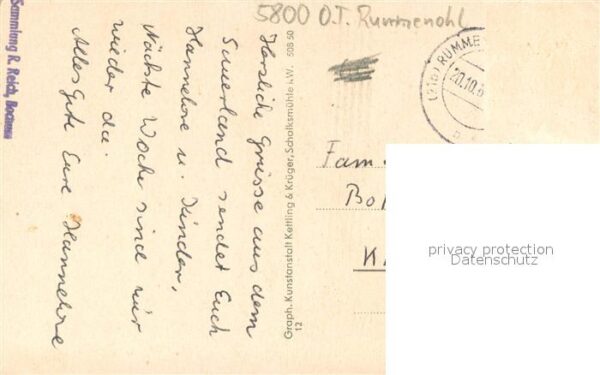 5800 O.T. Rummenohl
Sammlung R. Reich, Bochum
Herzliche Grüsse aus dem
Sauerland sendet Euch
Hannelore u. Kinder,
Nächste Woche sind wir
wieder da.
Alles Gute Eure Hannelore
Graph. Kunstanstalt Kettling & Krüger, Schalksmühle i.W. 508 50
12
(21b) RUMME
20.10.
Fam.
Bo
K
privacy protection
Datenschutz